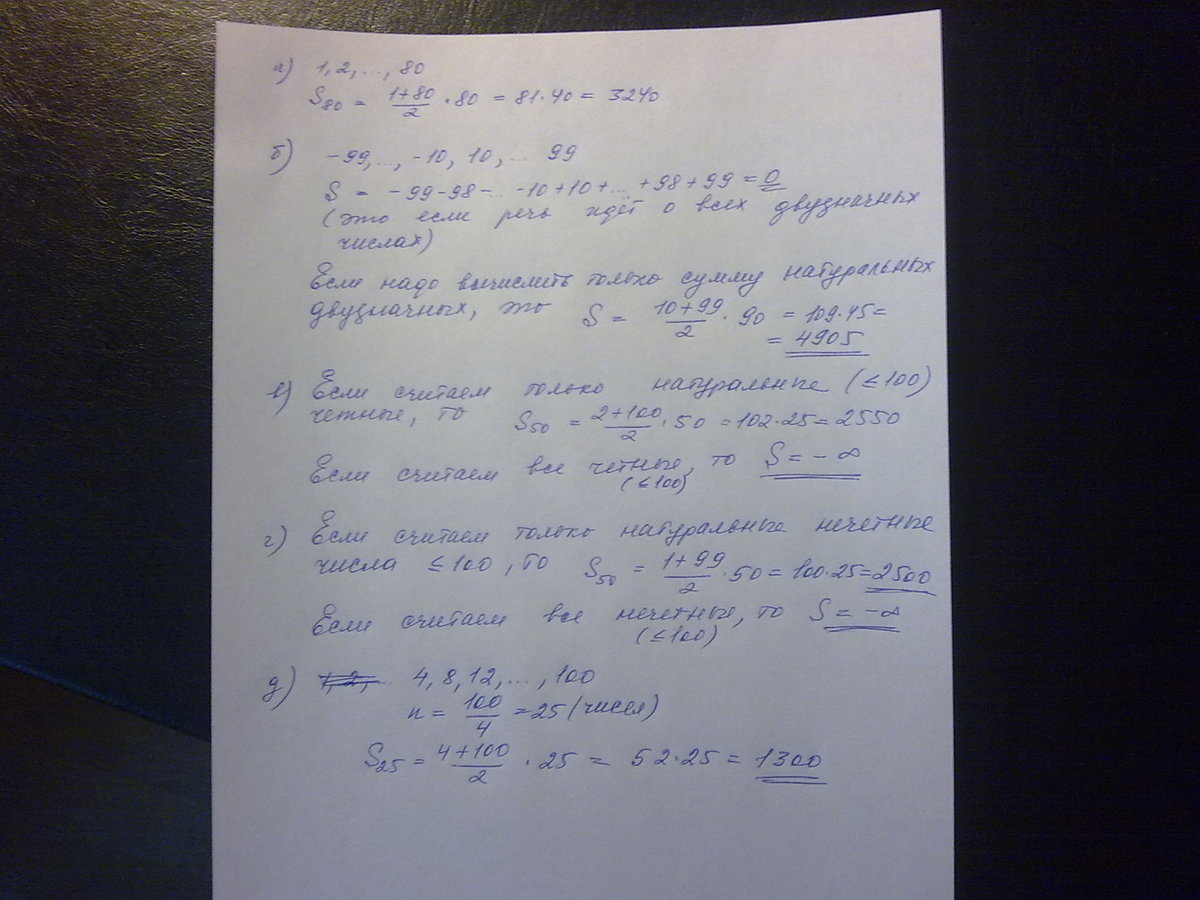 а) 1, 2, ..., 80
S₈₀ = (1+80)/2 · 80 = 81·40 = 3240
б) -99, ..., -10, 10, ... 99
S = -99-98-... -10+10+... +98+99 = 0
(это если речь идёт о всех двузначных
числах)
Если надо вычислить только сумму натуральных
двузначных, то S = (10+99)/2 · 90 = 109·45=
= 4905
в) Если считаем только натуральные (≤100)
четные, то S₅₀ = (2+100)/2 · 50 = 102·25 = 2550
Если считаем все четные, то S = -∞
(≤100)
г) Если считаем только натуральные нечетные
числа ≤100, то S₅₀ = (1+99)/2 · 50 = 100·25 = 2500
Если считаем все нечетные, то S = -∞
(≤100)
д) 4, 8, 12, ..., 100
n = 100/4 = 25 (чисел)
S₂₅ = (4+100)/2 · 25 = 52·25 = 1300